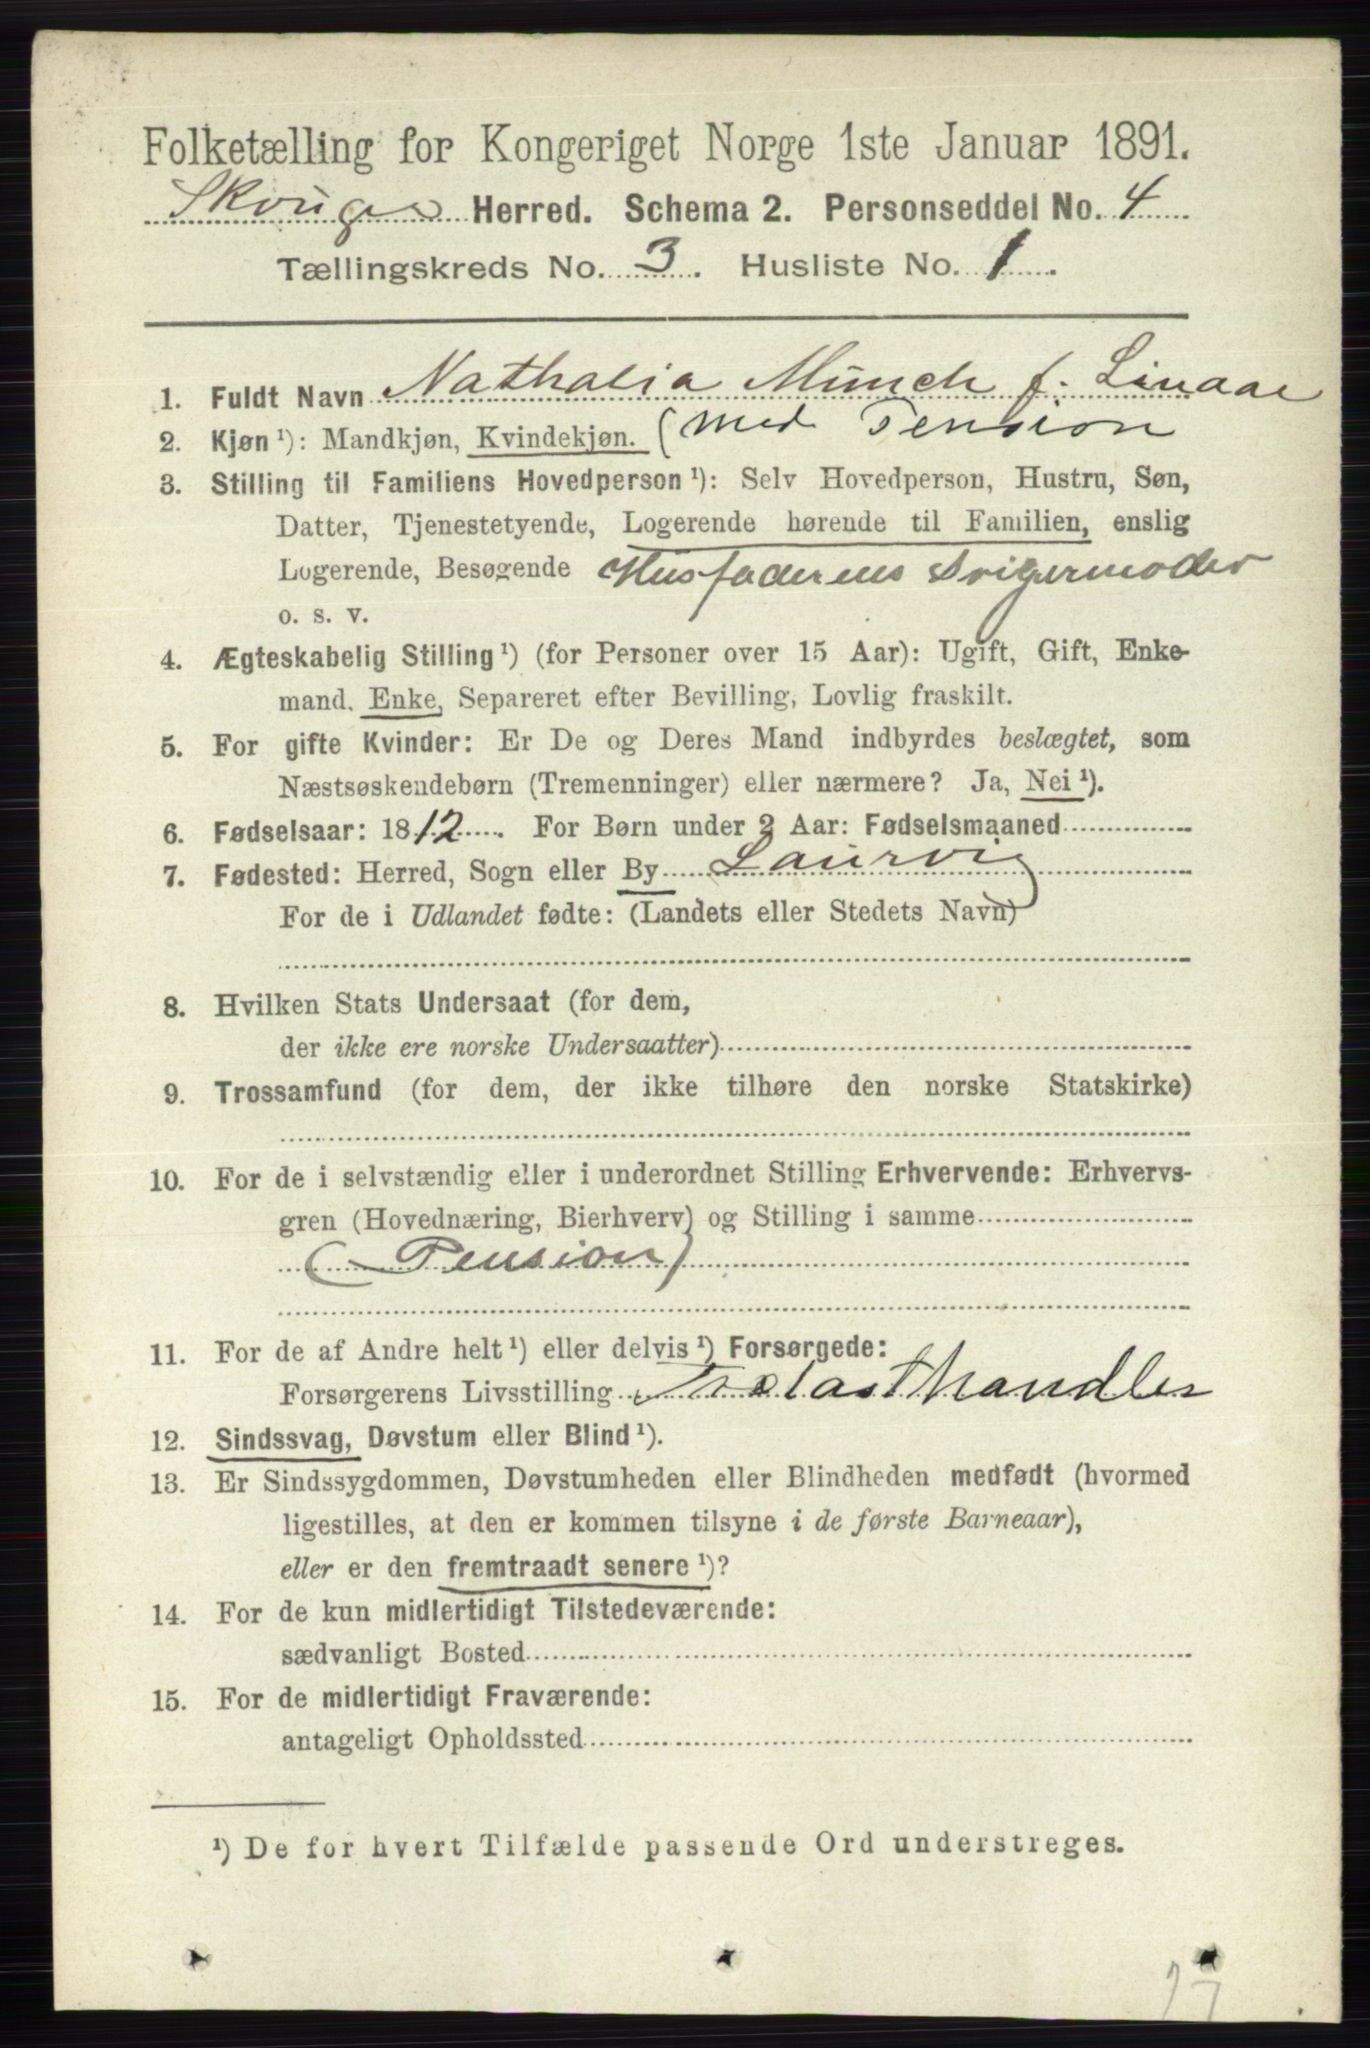 Folketælling for Kongeriget Norge 1ste Januar 1891.
Skouger Herred. Schema 2. Personseddel No. 4
Tællingskreds No. 3. Husliste No. 1.
1. Fuldt Navn Nathalia Münch f. Linaae
2. Kjøn ¹): Mandkjøn, Kvindekjøn. (med Pension
3. Stilling til Familiens Hovedperson ¹): Selv Hovedperson, Hustru, Søn,
Datter, Tjenestetyende, Logerende hørende til Familien, enslig
Logerende, Besøgende Husfaderens Svigermoder
o. s. v.
4. Ægteskabelig Stilling ¹) (for Personer over 15 Aar): Ugift, Gift, Enke-
mand, Enke, Separeret efter Bevilling, Lovlig fraskilt.
5. For gifte Kvinder: Er De og Deres Mand indbyrdes beslægtet, som
Næstsøskendebørn (Tremenninger) eller nærmere? Ja, Nei ¹).
6. Fødselsaar: 1812. For Børn under 2 Aar: Fødselsmaaned
7. Fødested: Herred, Sogn eller By Laurvig
For de i Udlandet fødte: (Landets eller Stedets Navn)
8. Hvilken Stats Undersaat (for dem,
der ikke ere norske Undersaatter)
9. Trossamfund (for dem, der ikke tilhøre den norske Statskirke)
10. For de i selvstændig eller i underordnet Stilling Erhvervende: Erhvervs-
gren (Hovednæring, Bierhverv) og Stilling i samme
(Pension)
11. For de af Andre helt ¹) eller delvis ¹) Forsørgede:
Forsørgerens Livsstilling Trælasthandler
12. Sindssvag, Døvstum eller Blind ¹).
13. Er Sindssygdommen, Døvstumheden eller Blindheden medfødt (hvormed
ligestilles, at den er kommen tilsyne i de første Barneaar),
eller er den fremtraadt senere ¹)?
14. For de kun midlertidigt Tilstedeværende:
sædvanligt Bosted
15. For de midlertidigt Fraværende:
antageligt Opholdssted
¹) De for hvert Tilfælde passende Ord understreges.
17